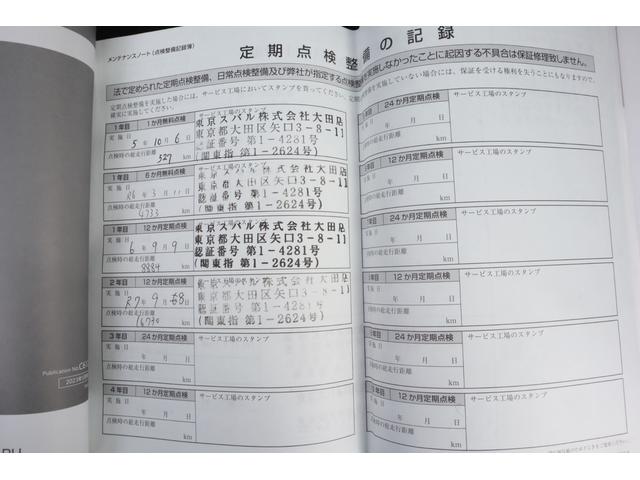 メンテナンスノート(点検整備記録簿)
定期点検整備の記録
法で定められた定期点検整備、日常点検整備及び弊社が指定する点検
を実施しなかったことに起因する不具合は保証修理致しません。
定期点検整備を実施した場合には、サービス工場においてスタンプを買ってください。定期
備を実施していない場合には、保証を受ける権利を失うこともありますので、
確実に実施してください。
1年目 1か月無料点検
サービス工場のスタンプ
実施日
5年10月6日
点検時の総走行距離
527 km
東京スバル株式会社大田店
東京都大田区矢口3-8-11
認証番号 第1-4281号
(関東指 第1-2624号)
1年目 6か月無料点検
サービス工場のスタンプ
実施日
R6年3月11日
点検時の総走行距離
4733 km
東京スバル株式会社大田店
東京都大田区矢口3-8-11
認証番号 第1-4281号
(関東指 第1-2624号)
1年目 12か月定期点検
実施日
6年9月9日
点検時の総走行距離
8884 km
東京スバル株式会社大田店
東京都大田区矢口3-8-11
認証番号 第1-4281号
(関東指 第1-2624号)
2年目 12か月定期点検
実施日
R7年9月8日
点検時の総走行距離
km
東京スバル株式会社大田店
東京都大田区矢口3-8-11
認証番号 第1-4281号
(関東指 第1-2624号)
3年目 24か月定期点検
サービス工場のスタンプ
実施日
年 月 日
点検時の総走行距離
km
4年目 12か月定期点検
サービス工場のスタンプ
実施日
年 月 日
点検時の総走行距離
km
24か月定期点検
サービス工場のスタンプ
年 月 日
点検時の総走行距離
km
年目 12か月定期点検
サービス工場のスタンプ
実施日
年 月 日
点検時の総走行距離
km
年目 24か月定期点検
サービス工場のスタンプ
実施日
年 月 日
点検時の総走行距離
km
年目 12か月定期点検
サービス工場のスタンプ
実施日
年 月 日
点検時の総走行距離
km
年目 24か月定期点検
サービス工場のスタンプ
実施日
年 月 日
点検時の総走行距離
km
年目 12か月定期点検
サービス工場のスタンプ
年 月 日
km
Publication No.